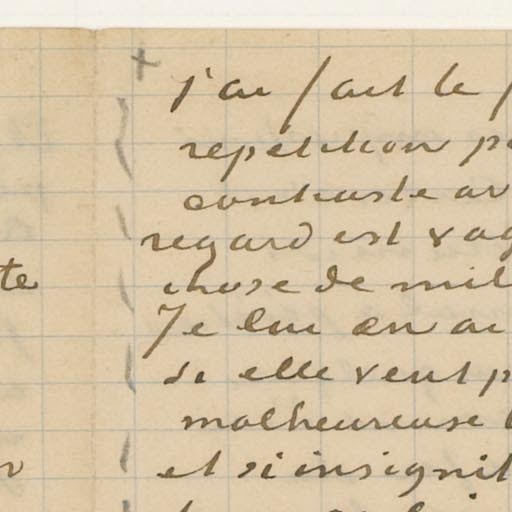 j'ai fait le
repetition
contraste av
regard est vag
te
chose de mil
Je lui en ai
si elle veut p
malheureuse
et si insignif